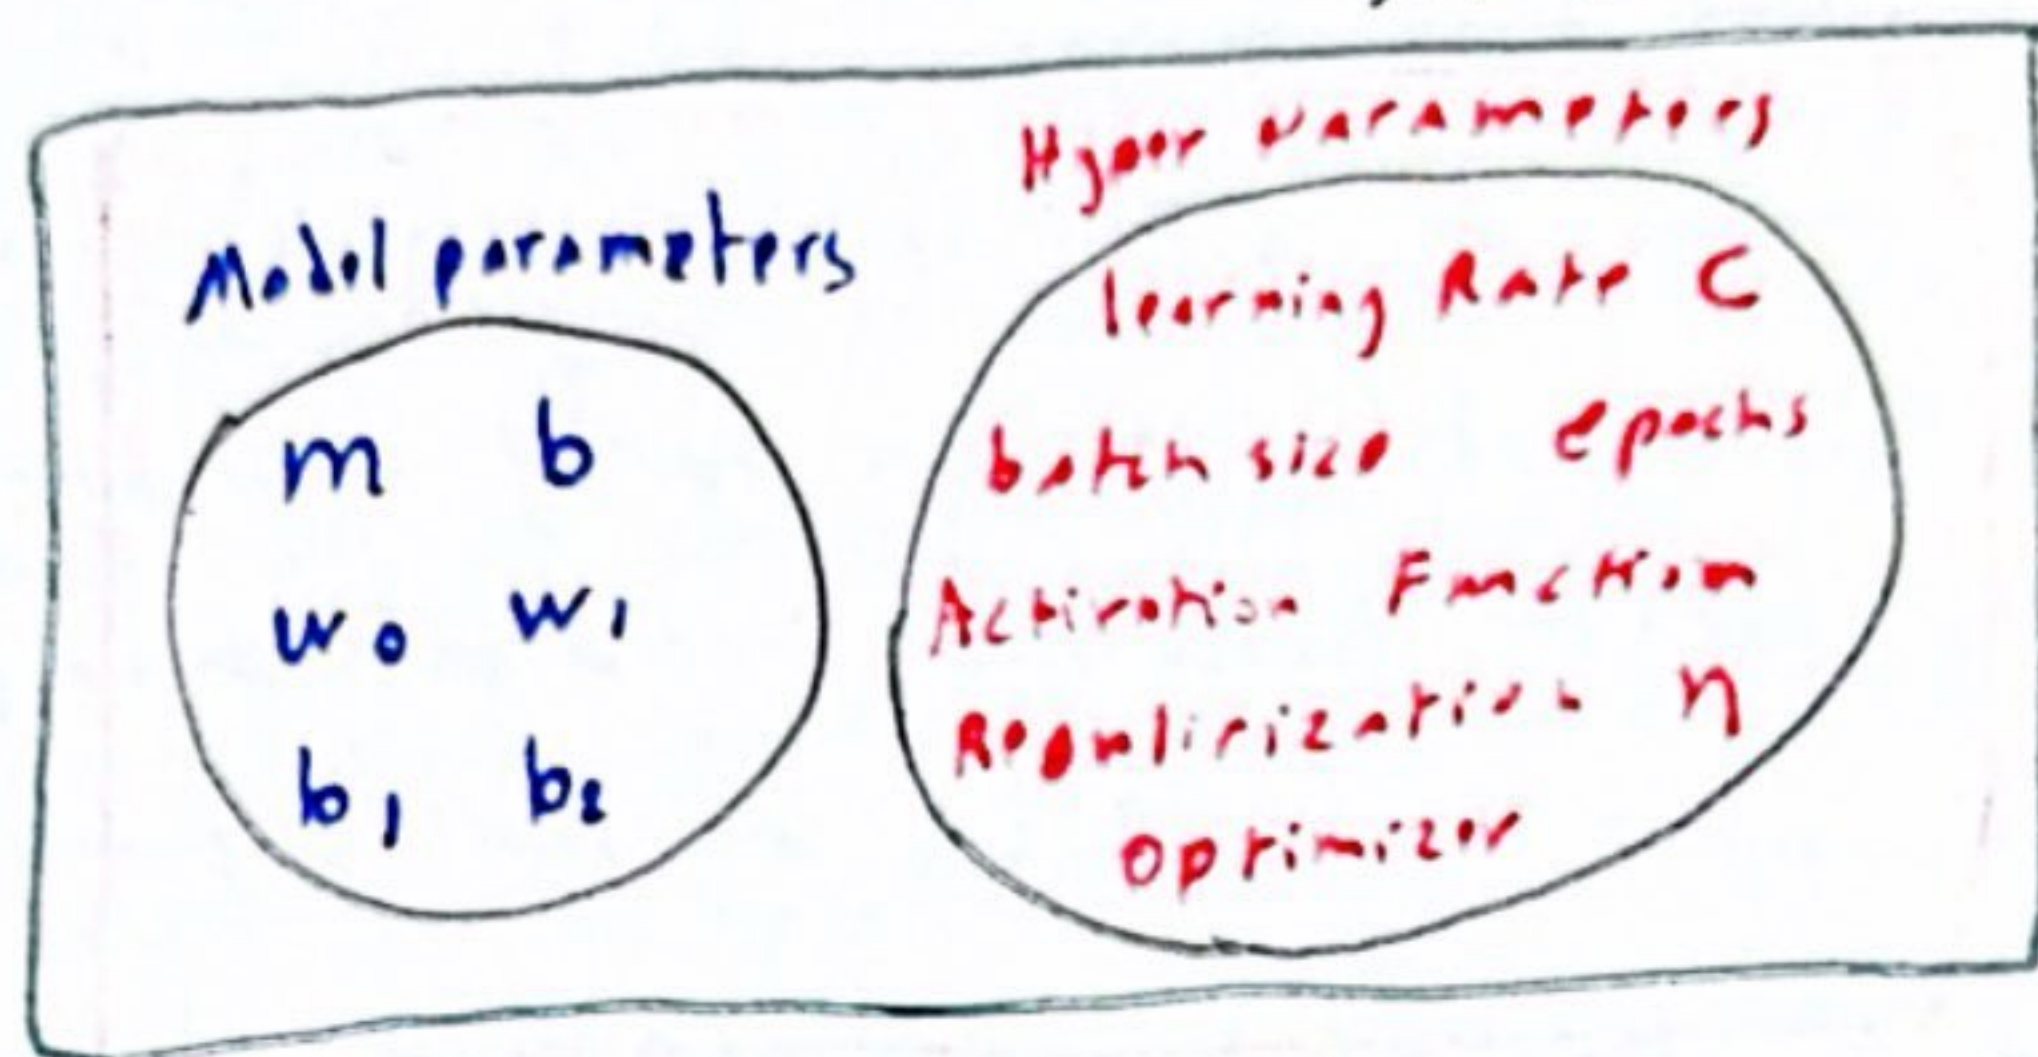 Model parameters
m b
w0 w1
b1 b2
Hyper parameters
learning Rate C
batch size epochs
Activation Function
Regulirization η
optimizer